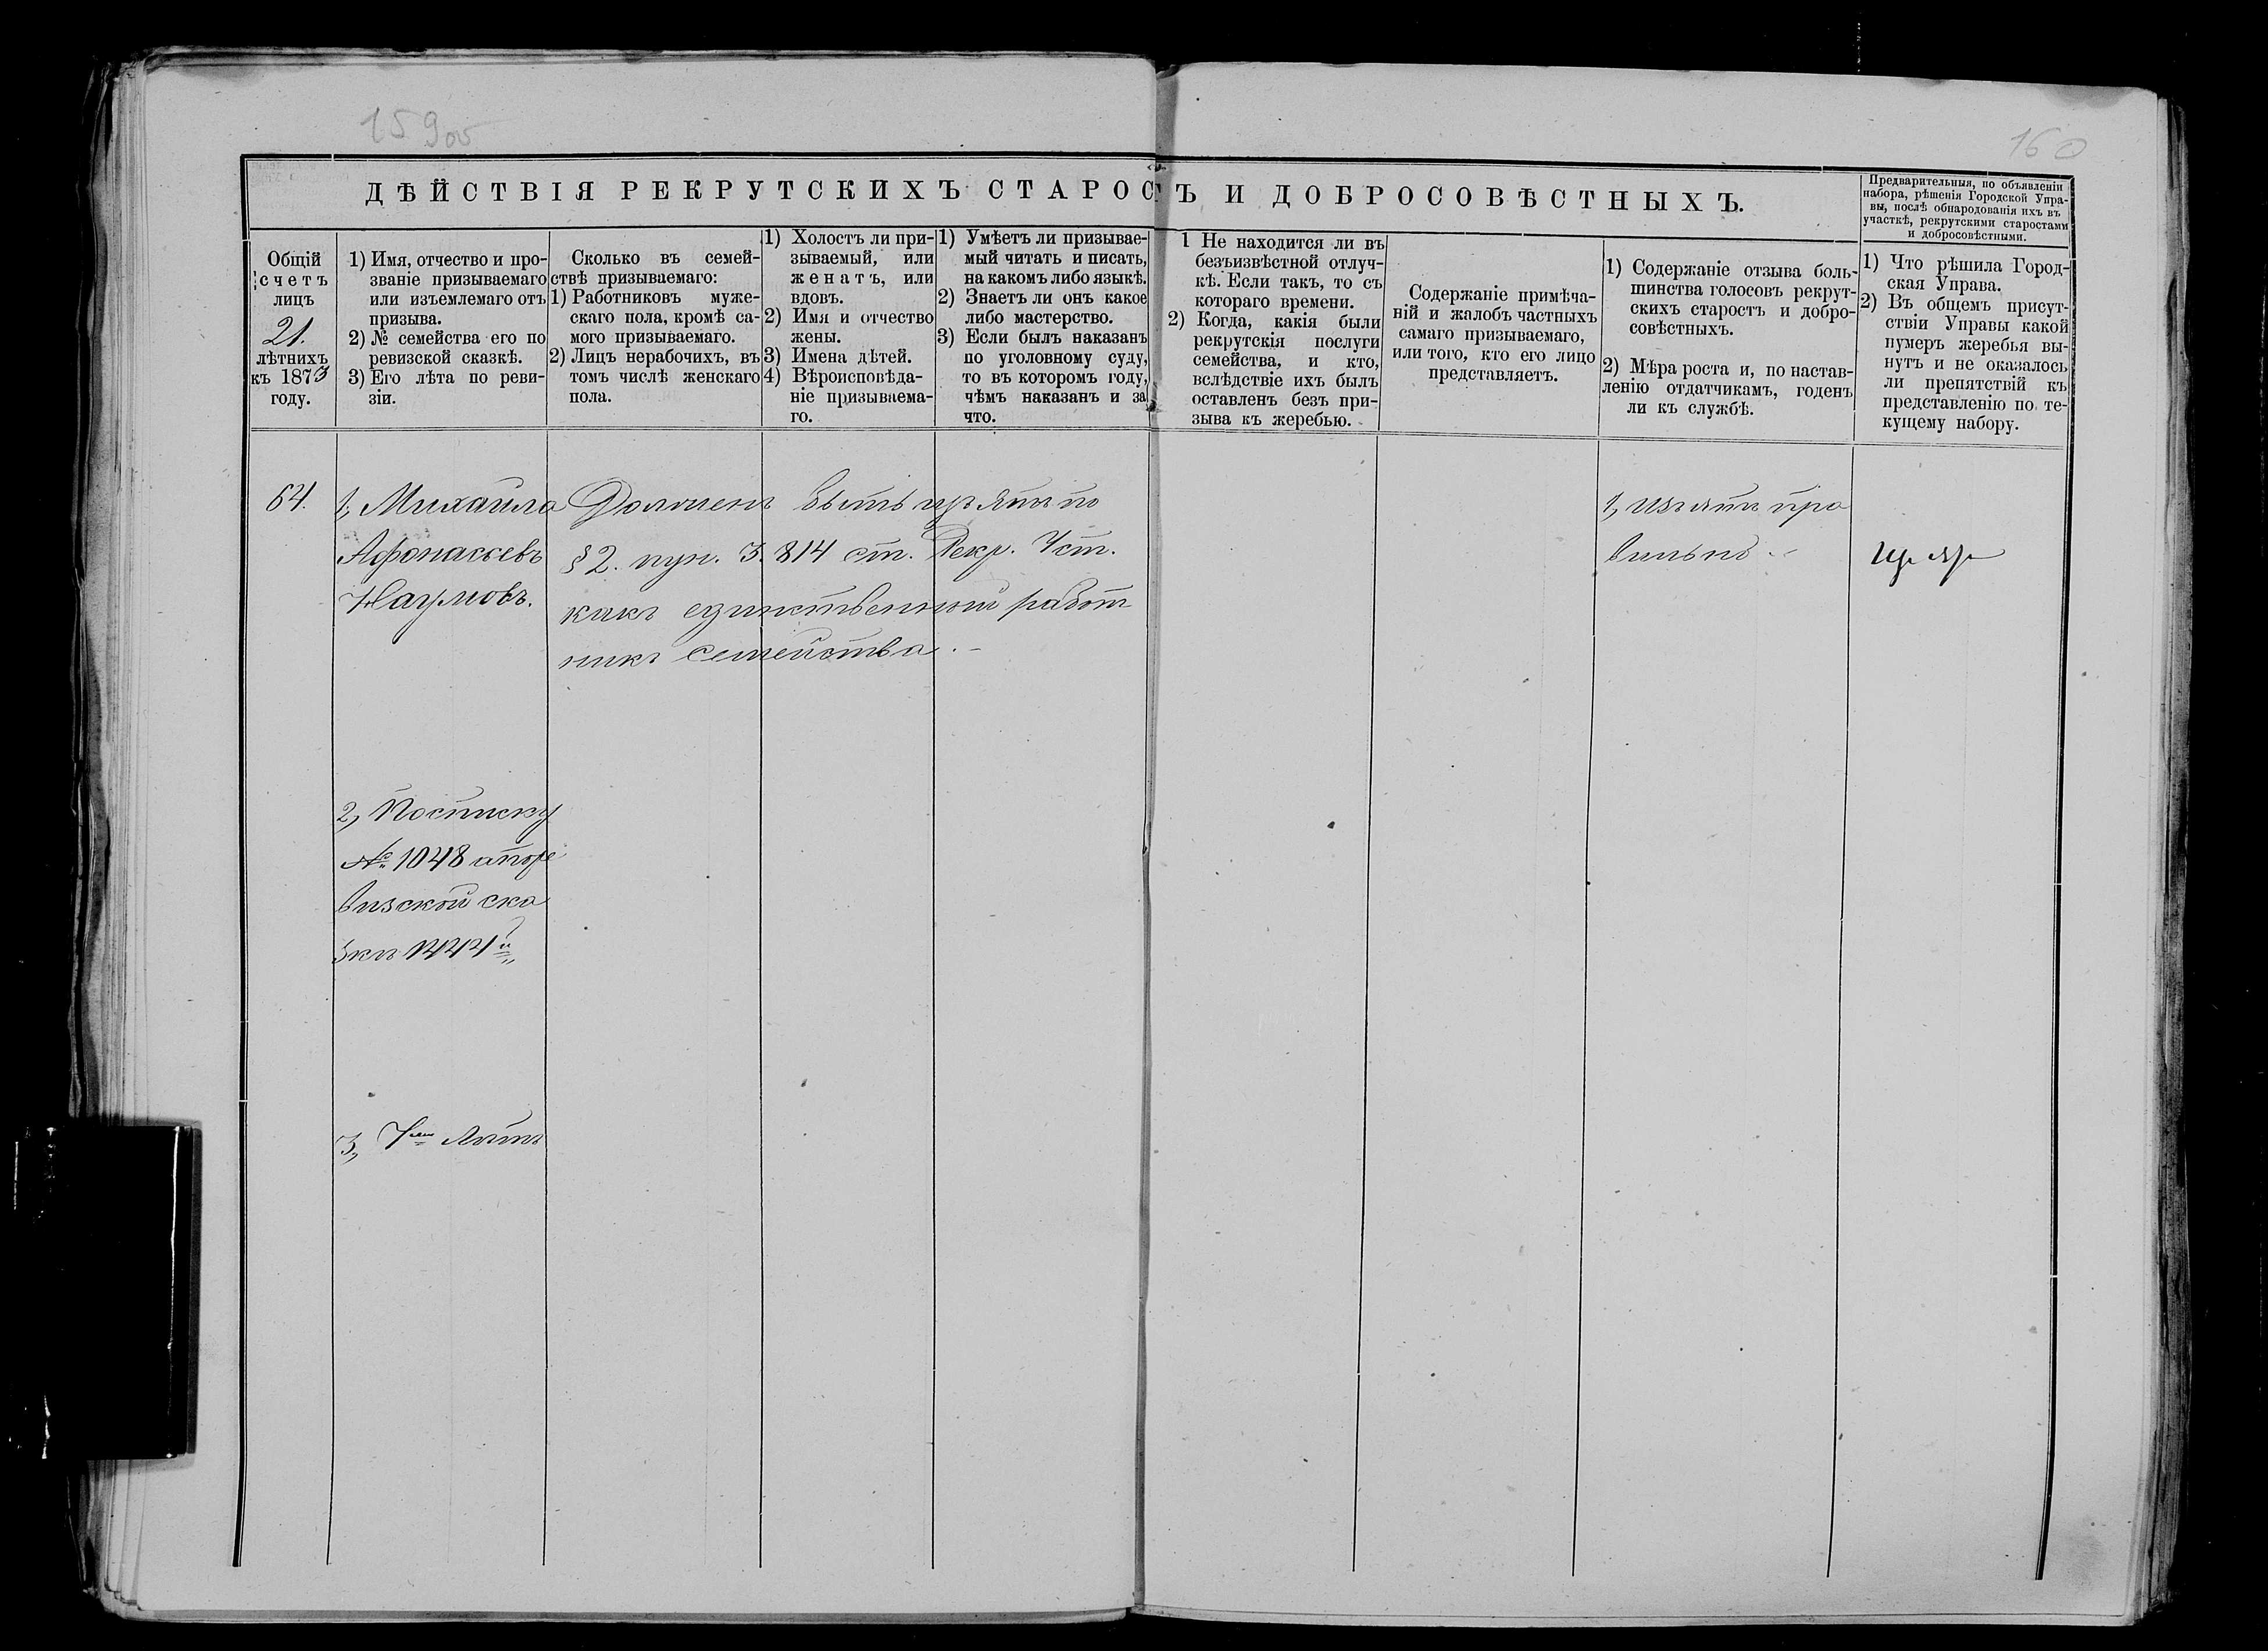 159об
160
ДѢЙСТВІЯ РЕКРУТСКИХЪ СТАРОСТЪ И ДОБРОСОВѢСТНЫХЪ.
Предварительныя, по объявленіи
набора, рѣшенія Городской Упра-
вы, послѣ обнародованія ихъ въ
участкѣ, рекрутскими старостами
и добросовѣстными.
Общій
счетъ
лицъ
21.
лѣтнихъ
къ 1873
году.
1) Имя, отчество и про-
званіе призываемаго
или изъемлемаго отъ
призыва.
2) № семейства его по
ревизской сказкѣ.
3) Его лѣта по реви-
зіи.
Сколько въ семей-
ствѣ призываемаго:
1) Работниковъ муже-
скаго пола, кромѣ са-
мого призываемаго.
2) Лицъ нерабочихъ, въ
томъ числѣ женскаго
пола.
1) Холостъ ли при-
зываемый, или
женатъ, или
вдовъ.
2) Имя и отчество
жены.
3) Имена дѣтей.
4) Вѣроисповѣда-
ніе призываема-
го.
1) Умѣетъ ли призывае-
мый читать и писать,
на какомъ либо языкѣ.
2) Знаетъ ли онъ какое
либо мастерство.
3) Если былъ наказанъ
по уголовному суду,
то въ которомъ году,
чѣмъ наказанъ и за
что.
1 Не находится ли въ
безъизвѣстной отлуч-
кѣ. Если такъ, то съ
котораго времени.
2) Когда, какія были
рекрутскія послуги
семейства, и кто,
вслѣдствіе ихъ былъ
оставленъ безъ при-
зыва къ жеребью.
Содержаніе примѣча-
ній и жалобъ частныхъ
самаго призываемаго,
или того, кто его лицо
представляетъ.
1) Содержаніе отзыва боль-
шинства голосовъ рекрут-
скихъ старостъ и добро-
совѣстныхъ.
2) Мѣра роста и, по настав-
ленію отдатчикамъ, годенъ
ли къ службѣ.
1) Что рѣшила Город-
ская Управа.
2) Въ общемъ присут-
ствіи Управы какой
нумеръ жеребья вы-
нутъ и не оказалось
ли препятствій къ
представленію по те-
кущему набору.
64.
1, Михаила
Афонасьевъ
Наумовъ.
Долженъ быть изъятъ по
§ 2. пун. 3. 814 ст. Рекр. Уст.
какъ единственный работ
никъ семейства. -
1, изъятъ пра
вильно. -
2, По списку
№ 1048 а по ре
визской ска
зкѣ 1444й
3, 7ми лѣтъ